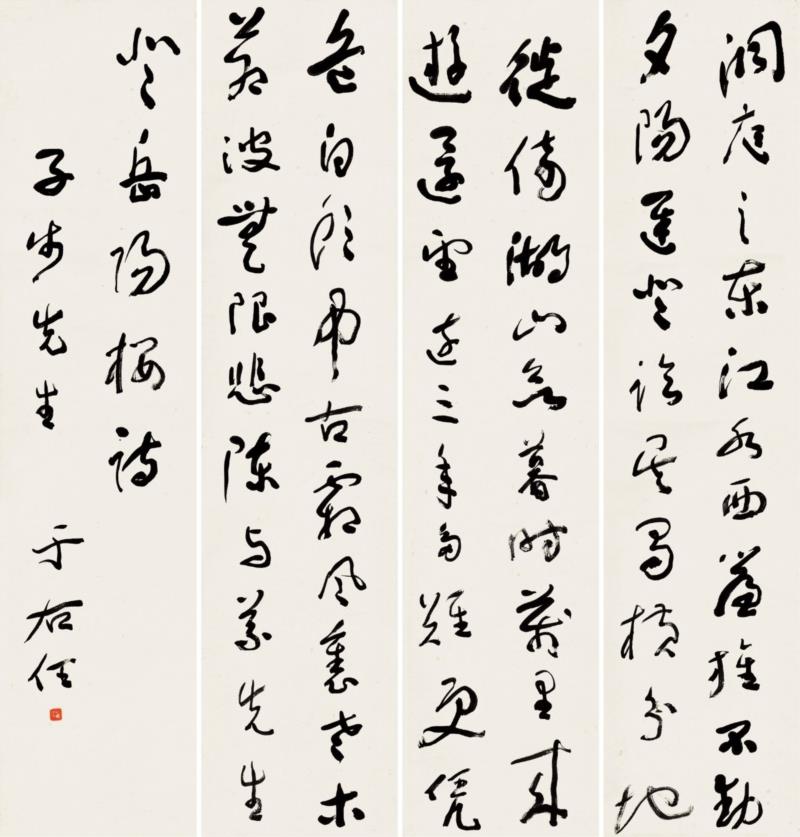 洞庭之東江水西簾旌不動
夕陽遲登臨吳蜀橫分地
徙倚湖山欲暮時萬里來
遊還望遠三年多難更憑
危白頭弔古霜風裏老木
蒼波無限悲陳與義先生
登岳陽樓詩
子步先生 于右任